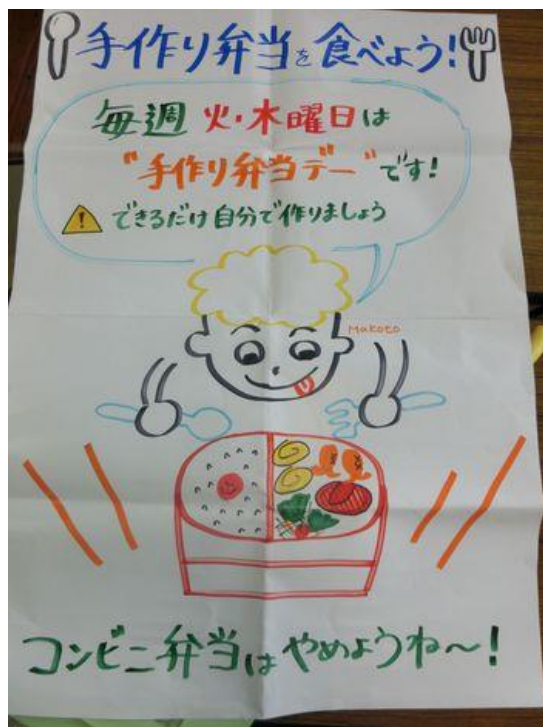 手作り弁当を食べよう!
毎週 火・木曜日は
"手作り弁当デー"です!
! できるだけ自分で作りましょう
Makoto
コンビニ弁当はやめようね〜!